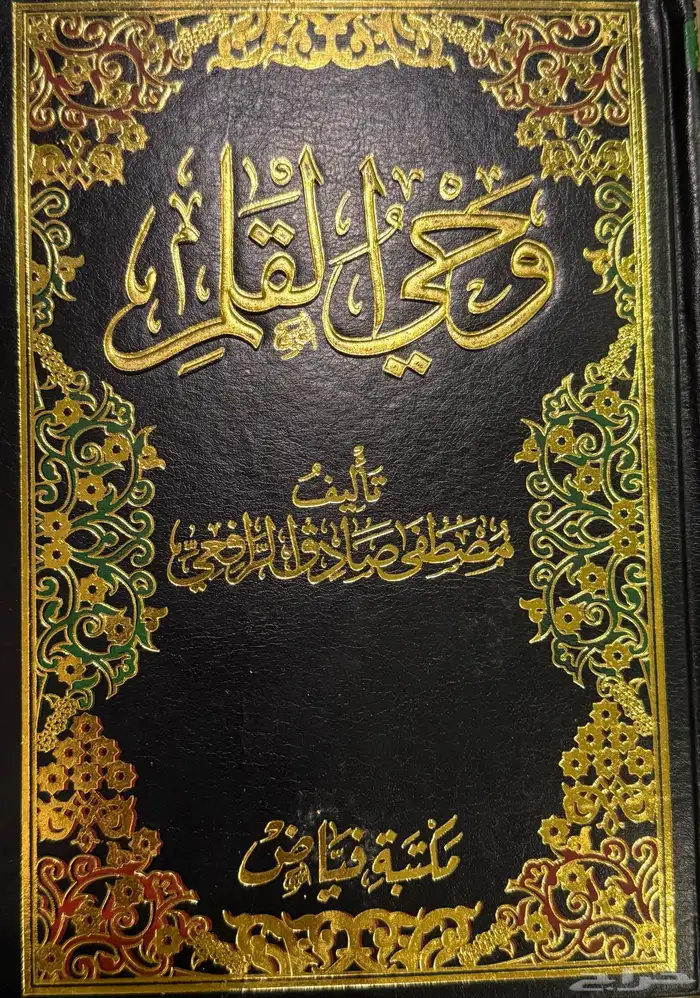 وَحْيُ القَلَمِ
تَأْلِيفُ
مُصْطَفَى صَادِق الرَّافِعِيّ
مَكْتَبَة فَيَّاض
حراج